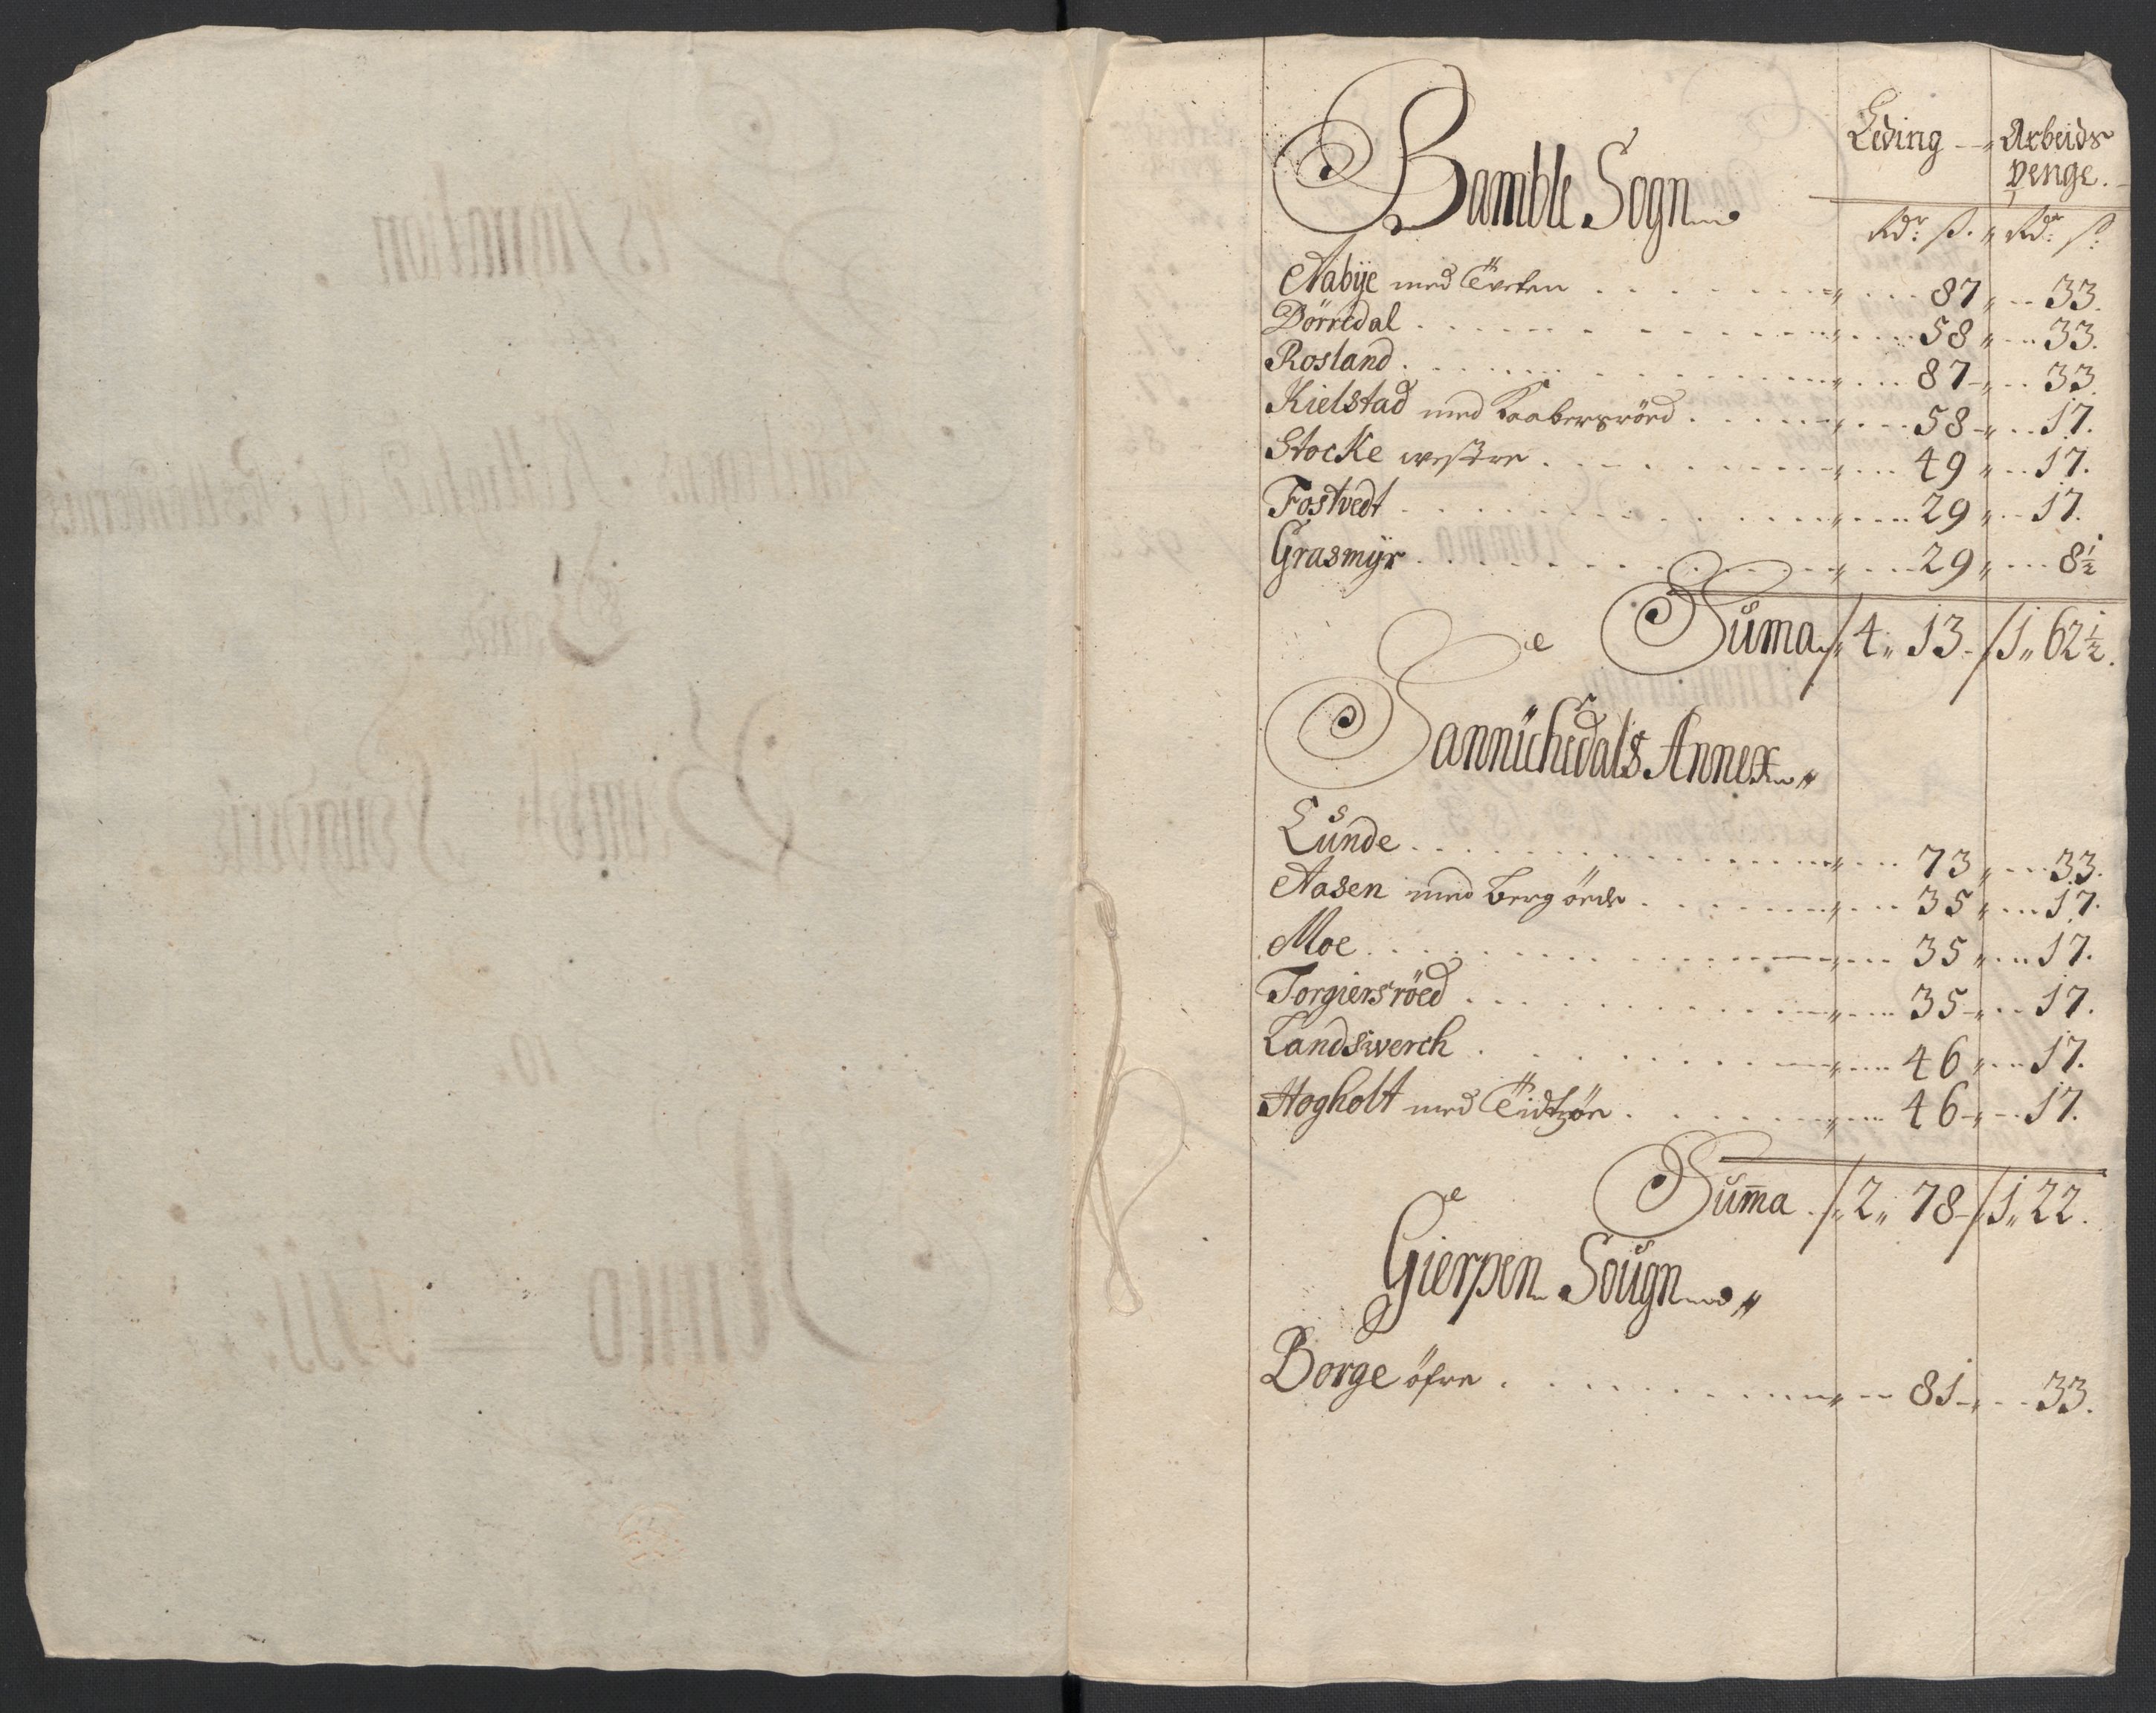 Leding Arbeids
penge.
Bamble Sogn
Rdr: s. Rdr: s:
Aabÿe med Tveten 87 33.
Dörredal 58 33.
Rosland 87 33.
Kielstad med Kaabersröed 58 17.
Stocke westre 49 17.
Fostvedt 29 17.
Grasmÿr 29 8½
Suma 4 13 1 62½.
Sannichedals Annex
Lunde 73 33.
Aasen med 35 17.
Moe 35 17.
Torgiersröed 35 17.
Landswerch 46 17.
Hogholt med 46 17.
Suma 2 78 1 22.
Gierpen Sougn
Borge öfre 81 33.